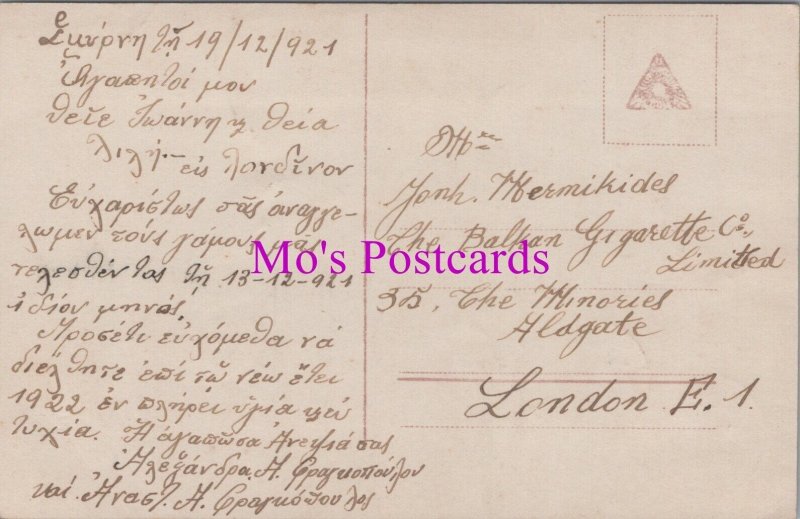 Ἐν Σμύρνῃ τῇ 19/12/921
Ἀγαπητοί μου
θεῖε Ἰωάννη κ θεία
Λιλή.– εἰς Λονδῖνον
Εὐχαρίστως σᾶς ἀναγγέ-
λωμεν τούς γάμους μας
τελεσθέντας τῇ 13-12-921
ἰδίου μηνός.
Προσέτι εὐχόμεθα νά
διέλθητε ἐπί τῶ νέω ἔτει
1922 ἐν πλήρει ὑγιία κ εὐ
τυχία. Ἡ ἀγαπῶσα Ἀνεψιά σας
Ἀλεξάνδρα. Α. Φραγκοπούλου
καί Ἀναστ. Α. Φραγκόπουλος
Jonh. Mermikides
The Balkan Gigarette Co.,
Limited
35, The Minories
Aldgate
London E. 1.
Mo's Postcards